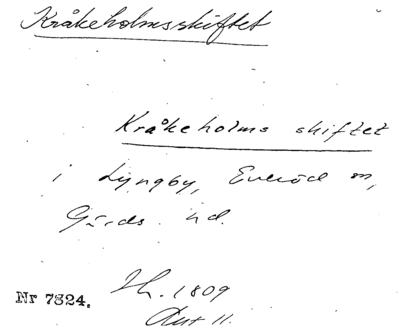 Kråkeholmsskiftet
Kråkeholms skiftet
i Lyngby, Everöd m,
Gärds hd.
Nr 7824.
Lh. 1809
Akt 11.